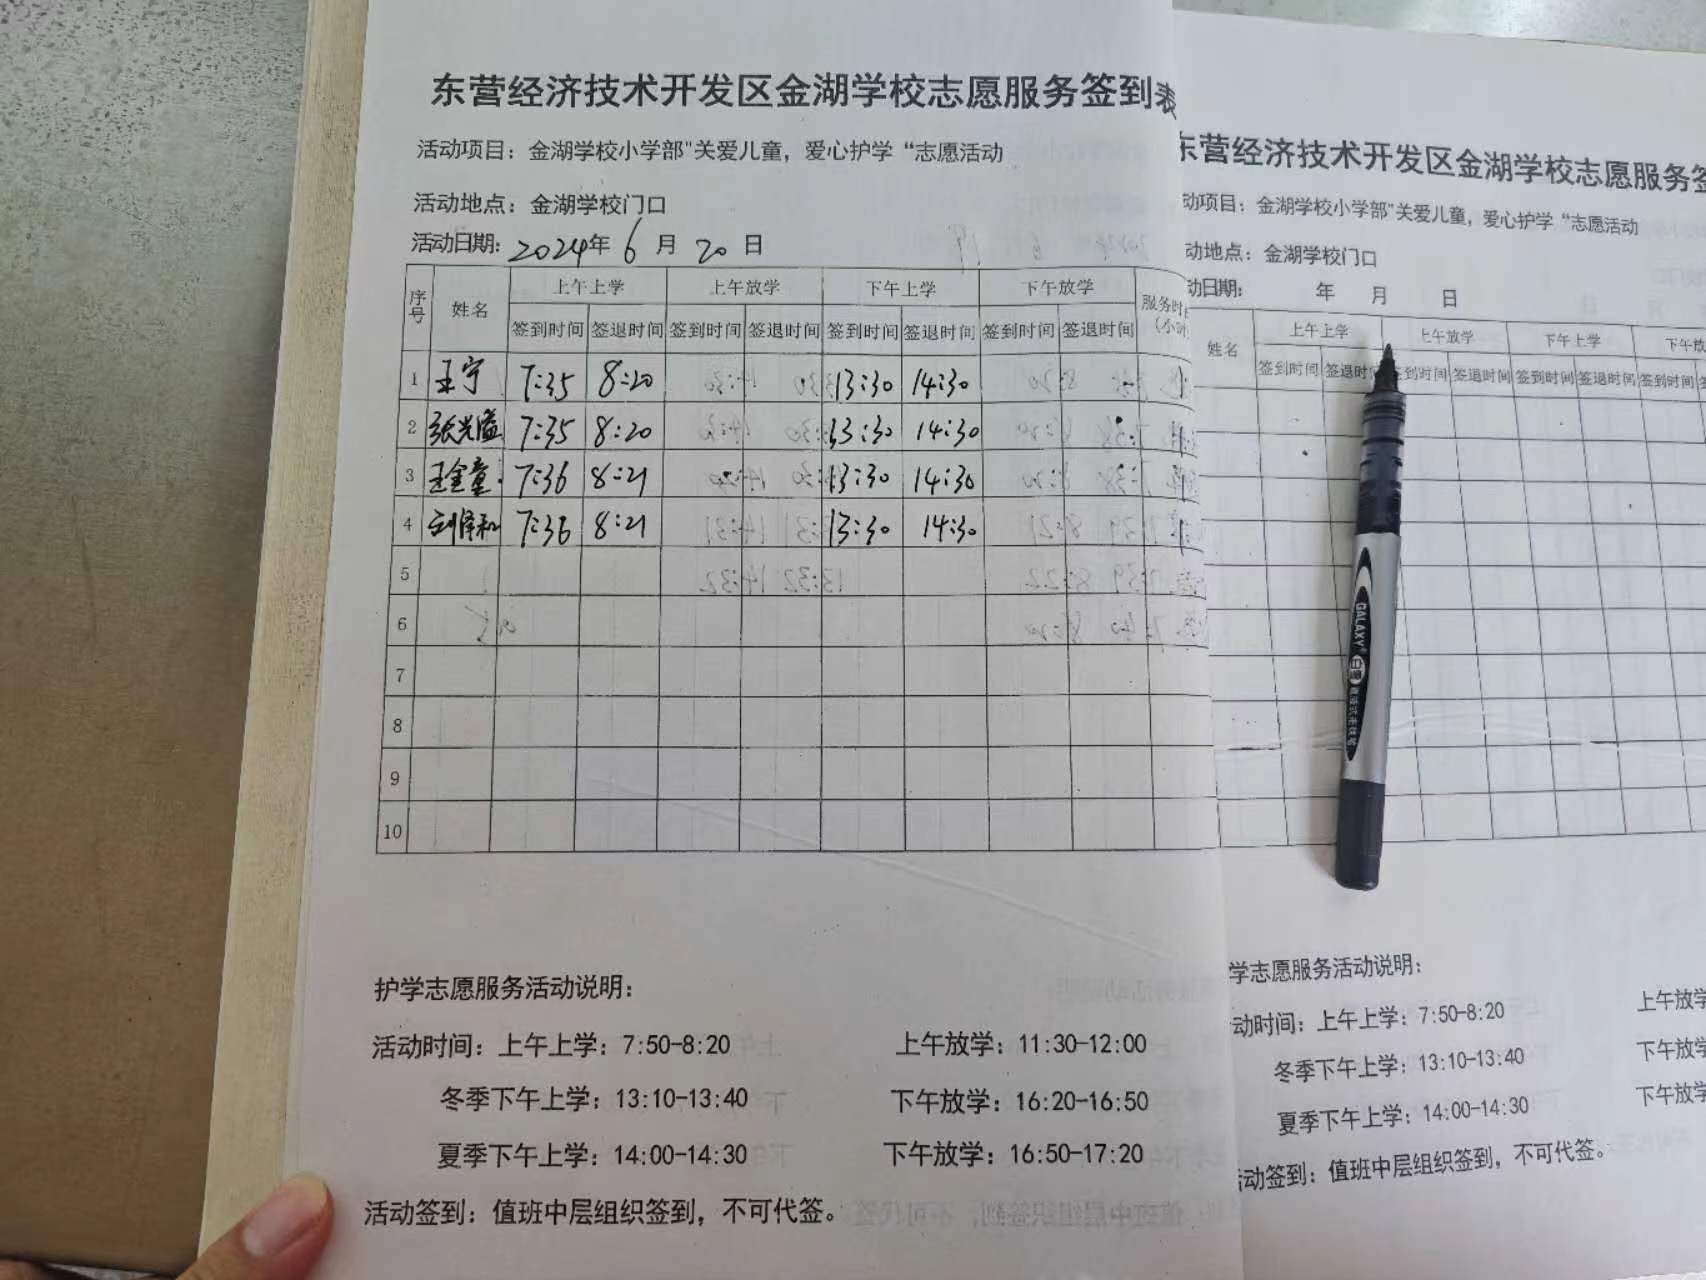 东营经济技术开发区金湖学校志愿服务签到表
活动项目：金湖学校小学部"关爱儿童，爱心护学“志愿活动
活动地点：金湖学校门口
活动日期：2024年 6 月 20 日
序号 姓名 上午上学 上午放学 下午上学 下午放学 服务时
签到时间 签退时间 签到时间 签退时间 签到时间 签退时间 签到时间 签退时间 （小时
1 王宁 7:35 8:20 13:30 14:30
2 张光溢 7:35 8:20 13:30 14:30
3 王金童 7:36 8:21 13:30 14:30
4 刘泽和 7:36 8:21 13:30 14:30
5
6
7
8
9
10
护学志愿服务活动说明：
活动时间：上午上学：7:50-8:20 上午放学：11:30-12:00
冬季下午上学：13:10-13:40 下午放学：16:20-16:50
夏季下午上学：14:00-14:30 下午放学：16:50-17:20
活动签到：值班中层组织签到，不可代签。
东营经济技术开发区金湖学校志愿服务签
动项目：金湖学校小学部"关爱儿童，爱心护学“志愿活动
动地点：金湖学校门口
动日期： 年 月 日
姓名 上午上学 上午放学 下午上学 下午放
签到时间 签退时间 签到时间 签退时间 签到时间 签退时间 签到时间
GALAXY
学志愿服务活动说明：
动时间：上午上学：7:50-8:20 上午放学
冬季下午上学：13:10-13:40 下午放学
夏季下午上学：14:00-14:30 下午放学
活动签到：值班中层组织签到，不可代签。